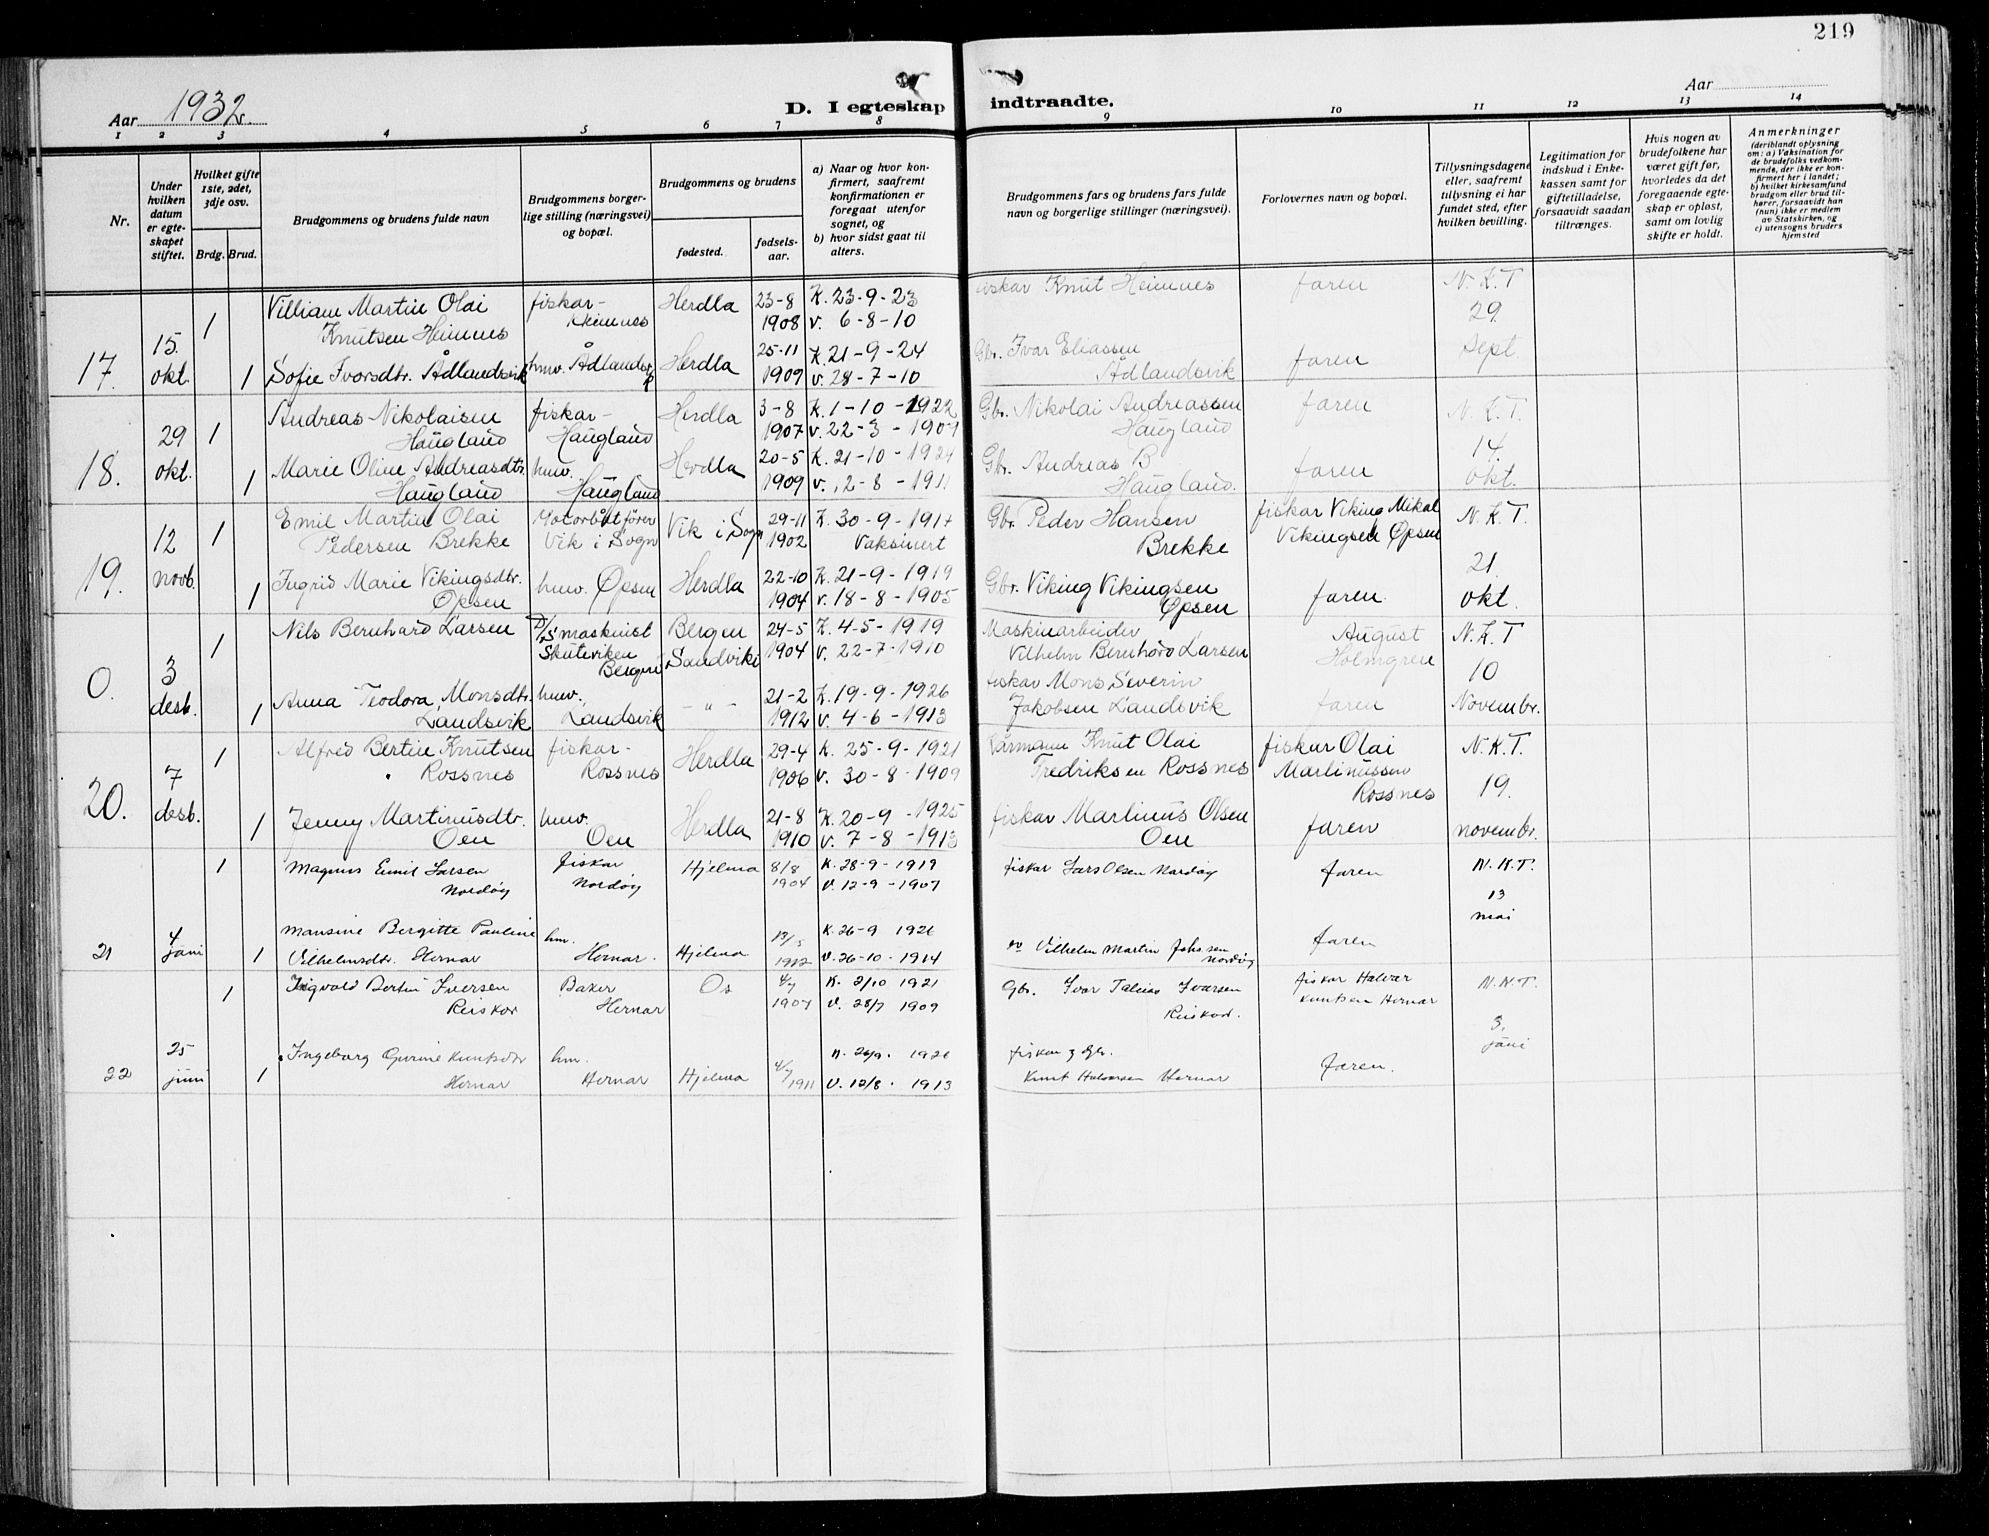 219
Aar 1932.
D. I egteskap indtraadte.
Aar
1 2 3 4 5 6 7 8 9 10 11 12 13 14
Nr.
Under hvilken datum er egteskapet stiftet.
Hvilket gifte 1ste, 2det, 3dje osv.
Brdg. Brud.
Brudgommens og brudens fulde navn
Brudgommens borgerlige stilling (næringsvei) og bopæl.
Brudgommens og brudens
fødested.
fødselsaar.
a) Naar og hvor konfirmert, saafremt konfirmationen er foregaat utenfor sognet, og
b) hvor sidst gaat til alters.
Brudgommens fars og brudens fars fulde navn og borgerlige stillinger (næringsvei).
Forlovernes navn og bopæl.
Tillysningsdagene eller, saafremt tillysning ei har fundet sted, efter hvilken bevilling.
Legitimation for indskud i Enkekassen samt for giftetilladelse, forsaavidt saadan tiltrænges.
Hvis nogen av brudefolkene har været gift før, hvorledes da det foregaaende egteskap er opløst, samt om lovlig skifte er holdt.
Anmerkninger (deriblandt oplysning om: a) Vaksination for de brudefolks vedkommende, der ikke er konfirmert her i landet; b) hvilket kirkesamfund brudgom eller brud tilhører, forsaavidt han (hun) ikke er medlem av Statskirken, og c) utensogns bruders hjemsted
17. 15. okt. 1 Villiam Martin Olai Knutsen Heimnes fiskar - Heimnes Herdla 23-8 1908 K. 23-9-23 v. 6-8-10 fiskar Knut Heimnes faren N.K.T 29. sept.
1 Sofie Ivorsdtr. Ådlandsvik huv. Ådlandsvk Herdla 25-11 1909 K. 21-9-24 v. 28-7-10 Gbr. Ivar Eliassen Ådlandsvik faren
18. 29 okt. 1 Andreas Nikolaisen Haugland fiskar - Haugland Herdla 3-8 1907 K. 1-10-1922 v. 22-3-1907 Gbr. Nikolai Andreassen Haugland faren N.K.T. 14. okt.
1 Marie Oline Andreasdtr. Haugland huv. Haugland Herdla 20-5 1909 K. 21-10-1924 v. 12-8-1911 Gbr. Andreas B Haugland. faren
19. 12 novb. 1 Emil Martin Olai Pedersen Brekke Motorbåtfører Vik i Sogn Vik i Sogn 29-11 1902 K. 30-9-1917 Vaksinert Gbr. Peder Hansen Brekke fiskar Viking Mikal Vikingsen Øpsen N.K.T. 21. okt.
1 Ingrid Marie Vikingsdtr. Øpsen huv. Øpsen Herdla 22-10 1904 K. 21-9-1919 v. 18-8-1905 Gbr. Viking Vikingsen Øpsen faren
0. 3 desb. 1 Nils Bernhard Larsen D/S maskinist Skuteviken Bergen Bergen Sandviken 24-5 1904 K. 4-5-1919 v. 22-7-1910 Maskinarbeider Vilhelm Bernhard Larsen August Holmgren N.K.T 10 Novembr.
1 Anna Teodora Monsdtr. Landsvik huv. Landsvik - " - 21-2 1912 K. 19-9-1926 v. 4-6-1913 fiskar Mons Severin Jakobsen Landsvik faren
20. 7 desb. 1 Alfred Bertin Knutsen Rossnes fiskar - Rossnes Herdla 29-4 1906 K. 25-9-1921 v. 30-8-1909 Kårmann Knut Olai Fredriksen Rossnes fiskar Olai Martinussen Rossnes N.K.T. 19. novembr.
1 Jenny Martinusdtr. Oen huv. Oen Herdla 21-8 1910 K. 20-9-1925 v. 7-8-1913 fiskar Martinus Olsen Oen faren
21 4 juni 1 Magnus Emil Larsen Nordøy fiskar Nordøy Hjelma 8/8 1904 K. 28-9-1919 V. 12-9-1907 fiskar Lars Olsen Nordøy faren N.K.T. 13 mai
1 Mansine Bergitte Pauline Vilhelmsdtr. Hernar hm. Hernar. Hjelma 1912 K. 26-9 1926 V. 26-10-1914 Vilhelm Martin Johssen Nordøy faren
22 25 juni 1 Ingvald Bertin Iversen Reiskor Baker Hernar Os 4/7 1907 K. 2/10 1921 V. 28/7 1909 Gbr. Ivar Tobias Ivarsen Reiskor. fiskar Halvar Knutsen Hernar N.K.T. 3. juni
1 Ingeborg Gurine Knutsdtr Hernar hm. Hernar Hjelma 4/7 1911 K. 26/9. 1926 V. 12/8. 1913 fiskar & Gbr. Knut Halvorsen Hernar faren.